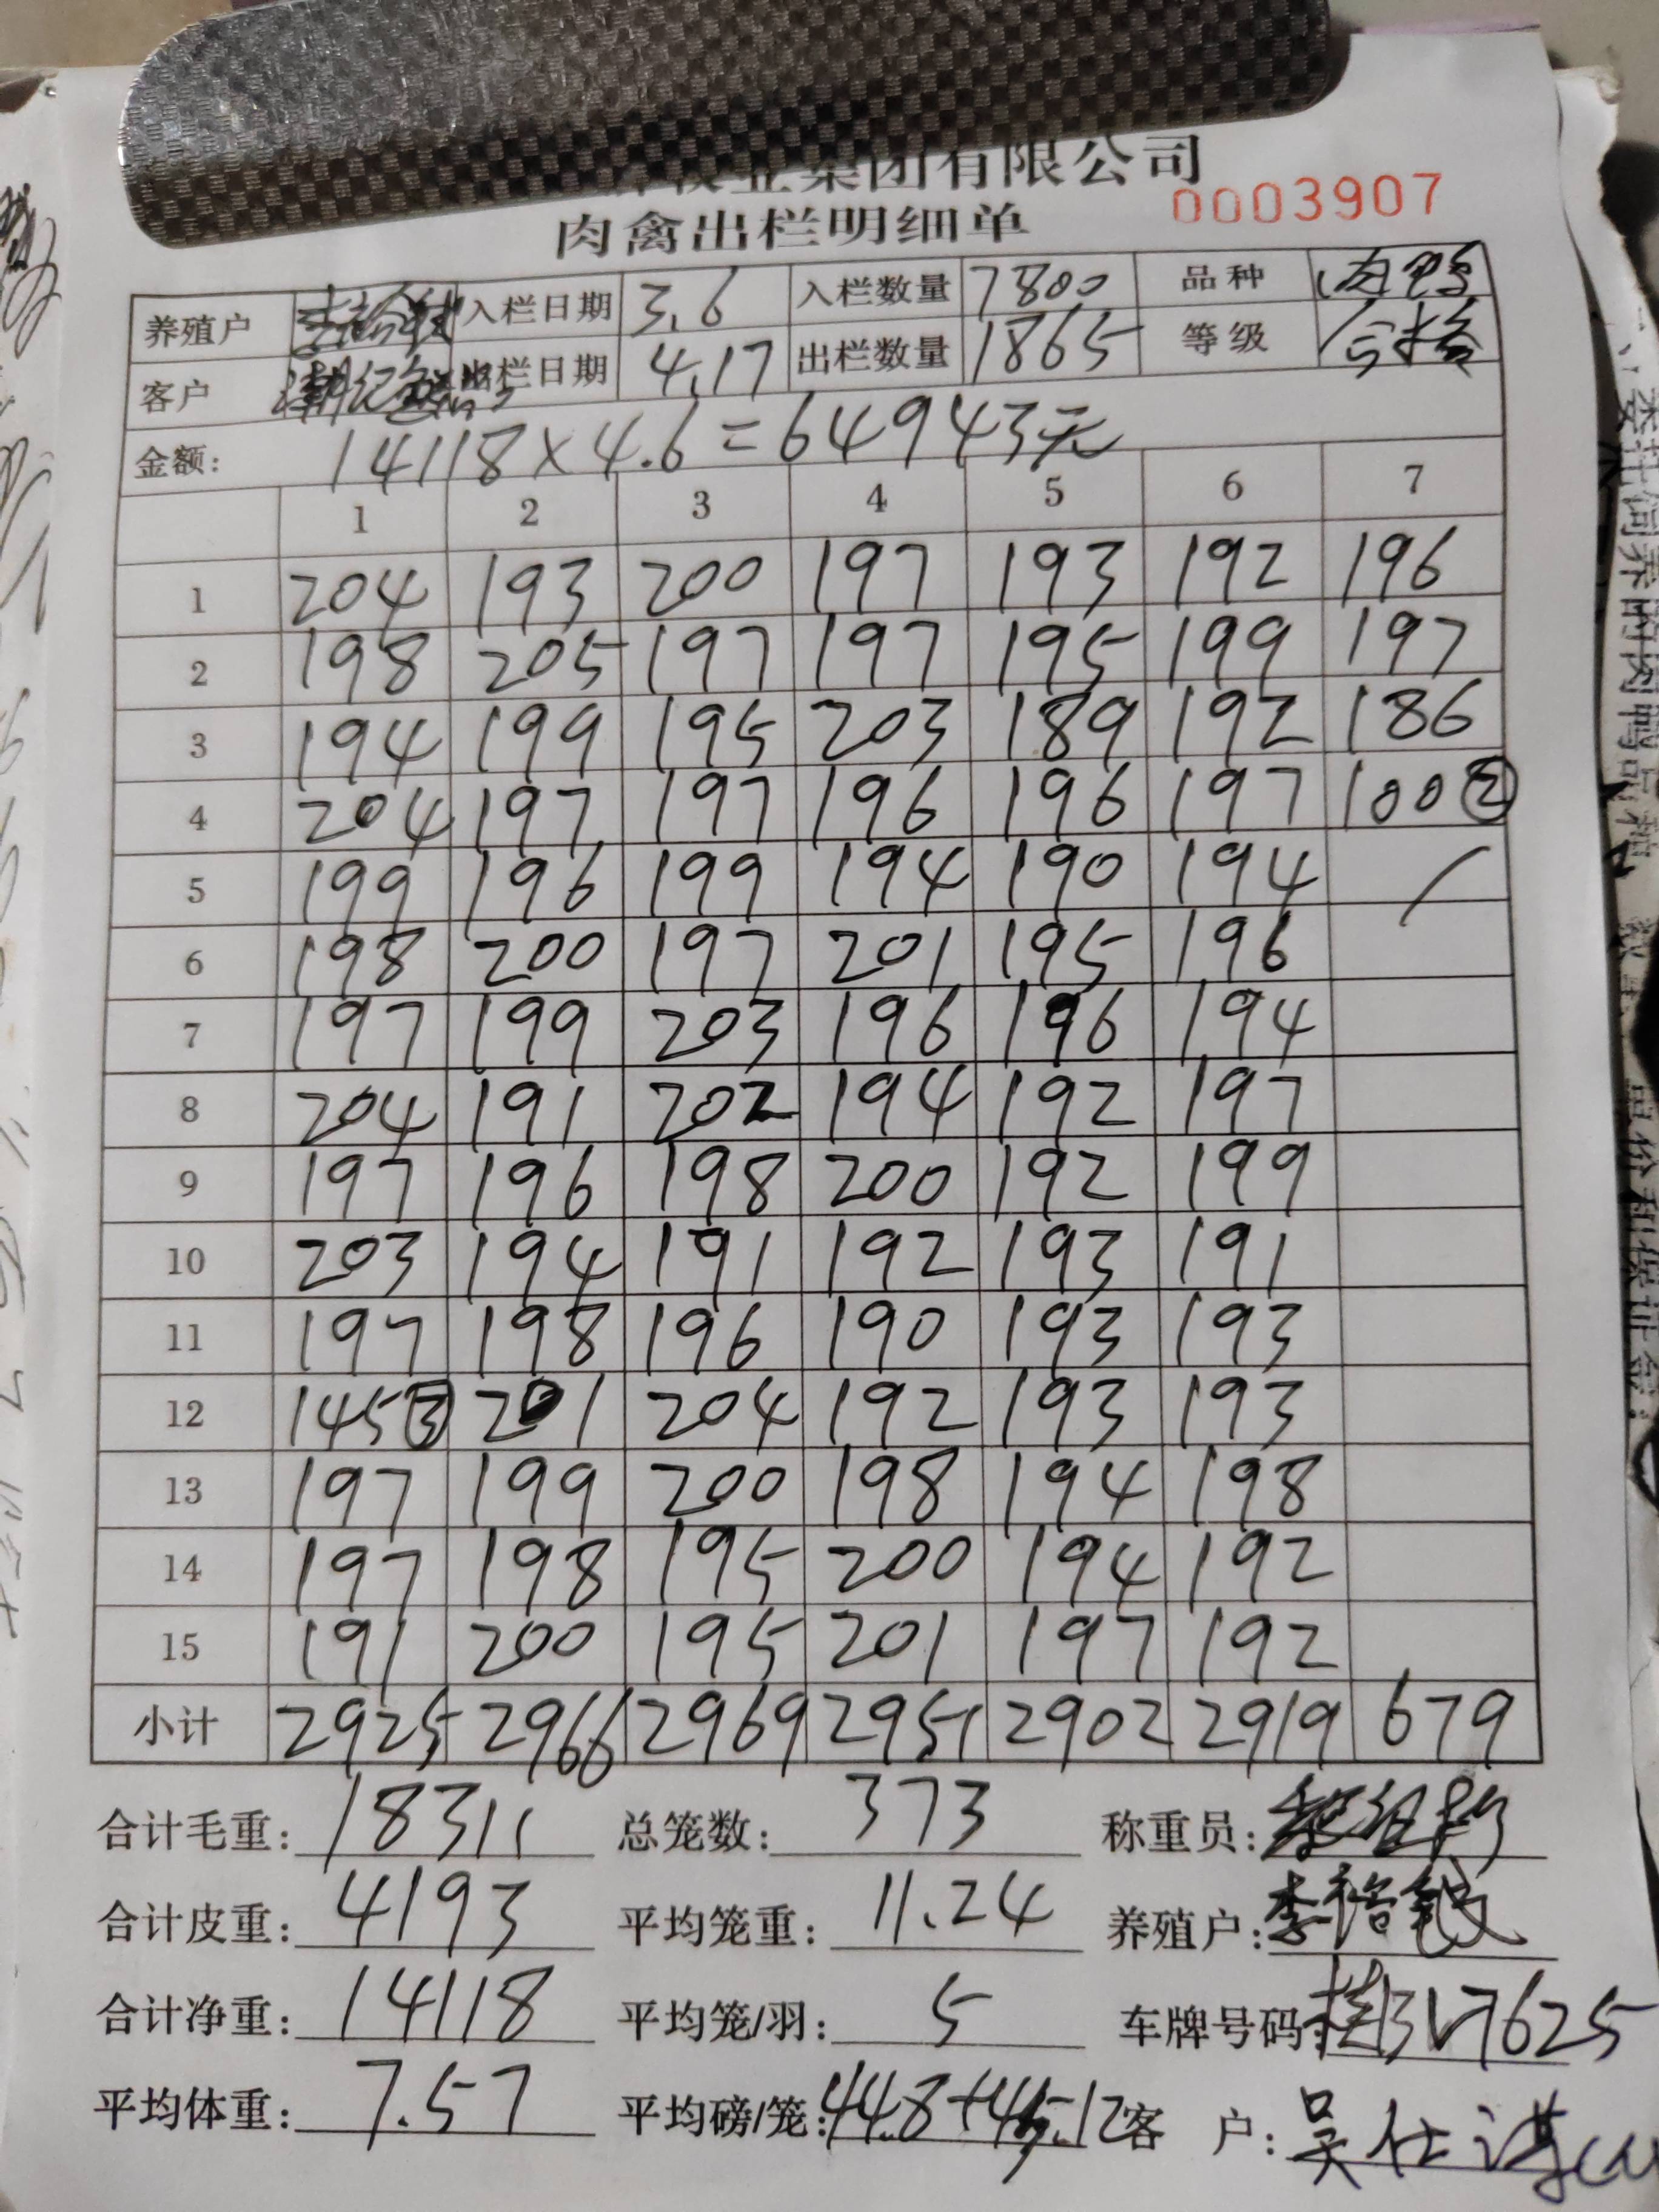 集团有限公司
肉禽出栏明细单 0003907
养殖户 入栏日期 3.6 入栏数量 7800 品种 肉鸭
客户 出栏日期 4.17 出栏数量 1865 等级 合格
金额: 14118×4.6=64943元
1 2 3 4 5 6 7
1 204 193 200 197 193 192 196
2 198 205 197 197 195 199 197
3 194 199 195 203 189 192 186
4 204 197 197 196 196 197 100②
5 199 196 199 194 190 194 /
6 198 200 197 201 195 196
7 197 199 203 196 196 194
8 204 191 202 194 192 197
9 197 196 198 200 192 199
10 203 194 191 192 193 191
11 197 198 196 190 193 193
12 145③ 201 204 192 193 193
13 197 199 200 198 194 198
14 197 198 195 200 194 192
15 191 200 195 201 197 192
小计 2925 2966 2969 2951 2902 2919 679
合计毛重: 18311 总笼数: 373 称重员:
合计皮重: 4193 平均笼重: 11.24 养殖户:
合计净重: 14118 平均笼/羽: 5 车牌号码:
平均体重: 7.57 平均磅/笼: 客户: 吴仕
委托饲养的肉鸭品种